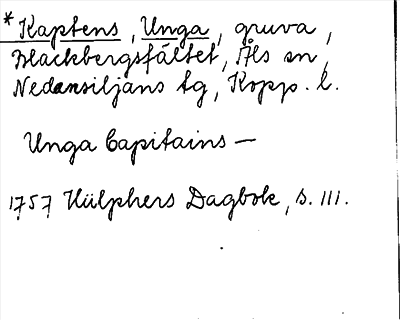 * Kaptens, Unga, gruva,
Blackbergsfältet, Åls sn,
Nedansiljans tg, Kopp. l.
Unga Capitains —
1757 Hülphers Dagbok, s. 111.